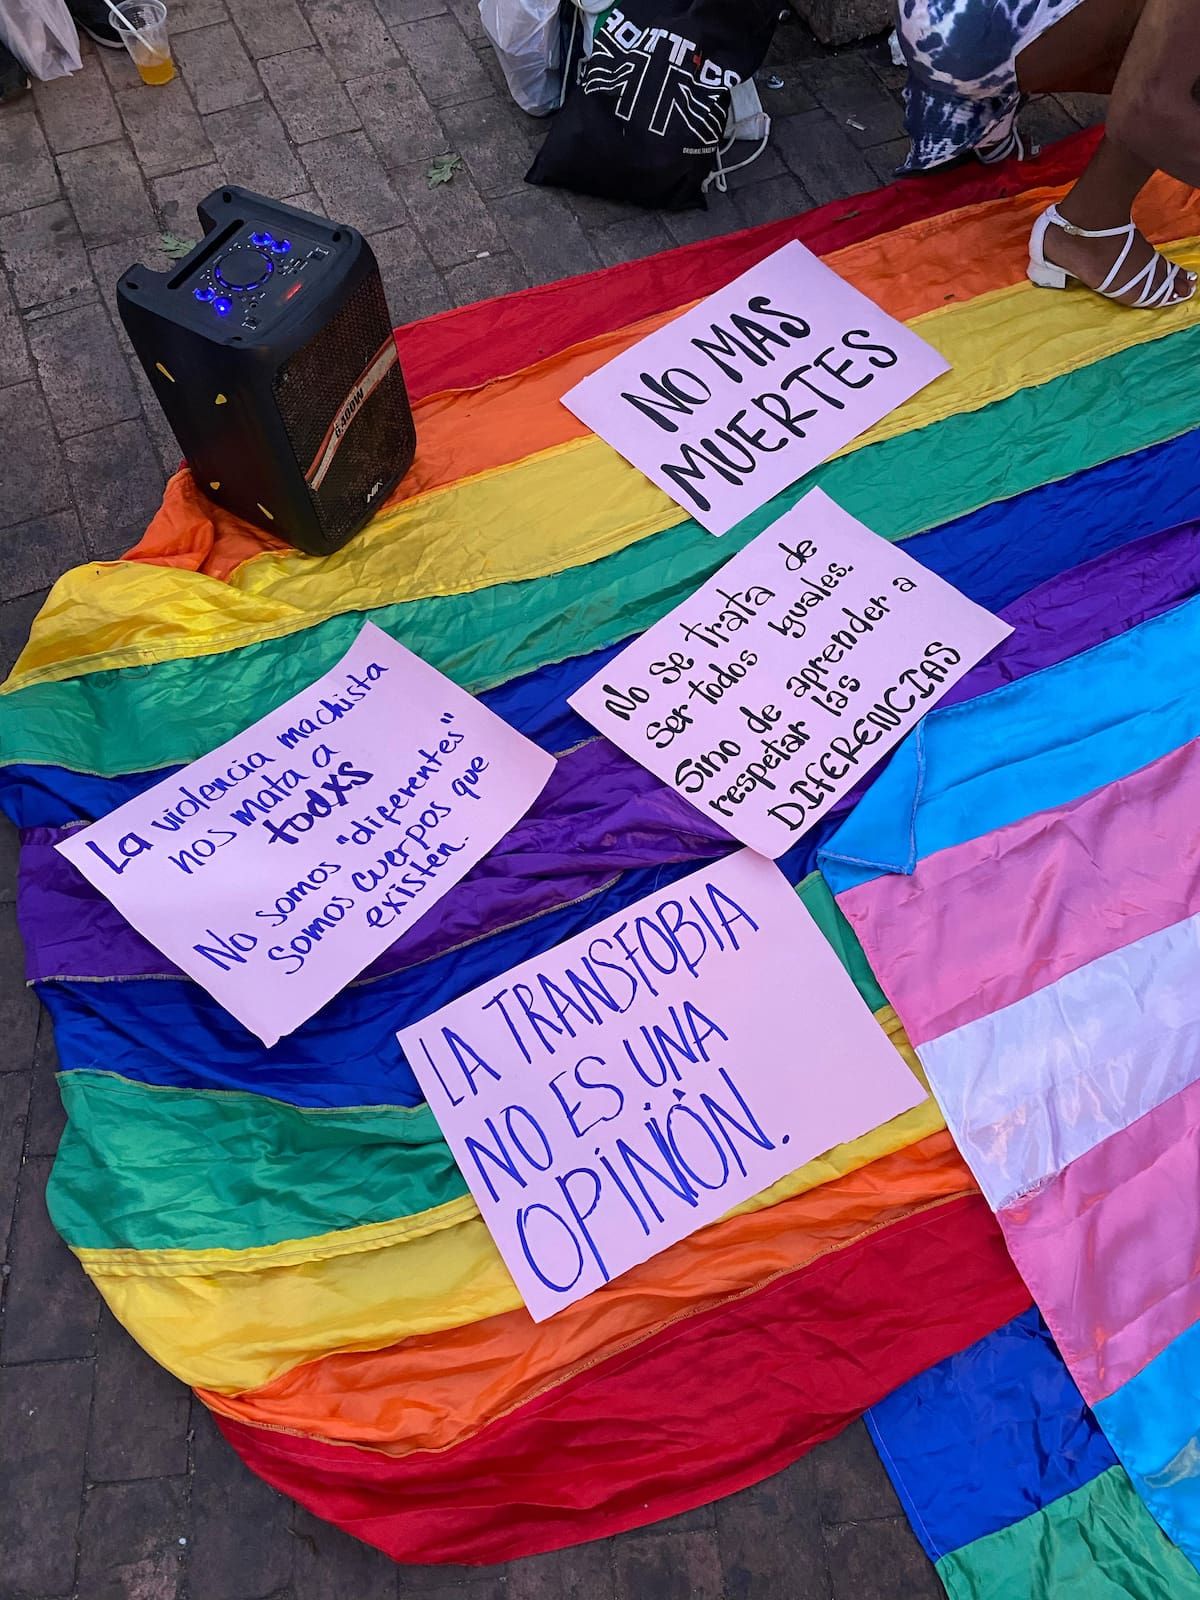 NO MAS
MUERTES
No Se trata de
Ser todos iguales.
Sino de aprender a
respetar las
DIFERENCIAS
La violencia machista
nos mata a
todxs
No somos "diferentes"
Somos cuerpos que
existen.
LA TRANSFOBIA
NO ES UNA
OPINIÓN.